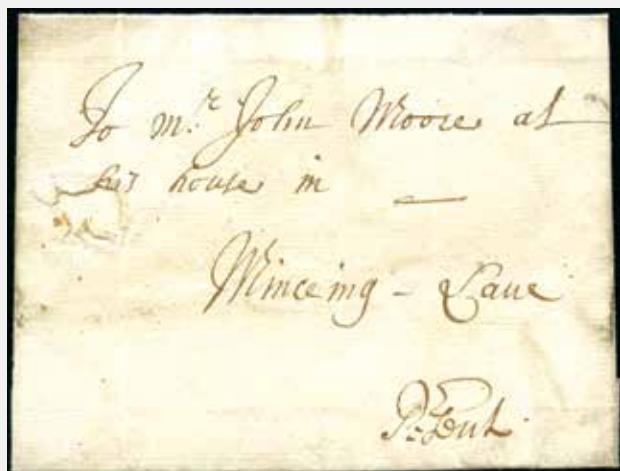 To mr. John Moore at
his house in —
Minceing - Lane
Present